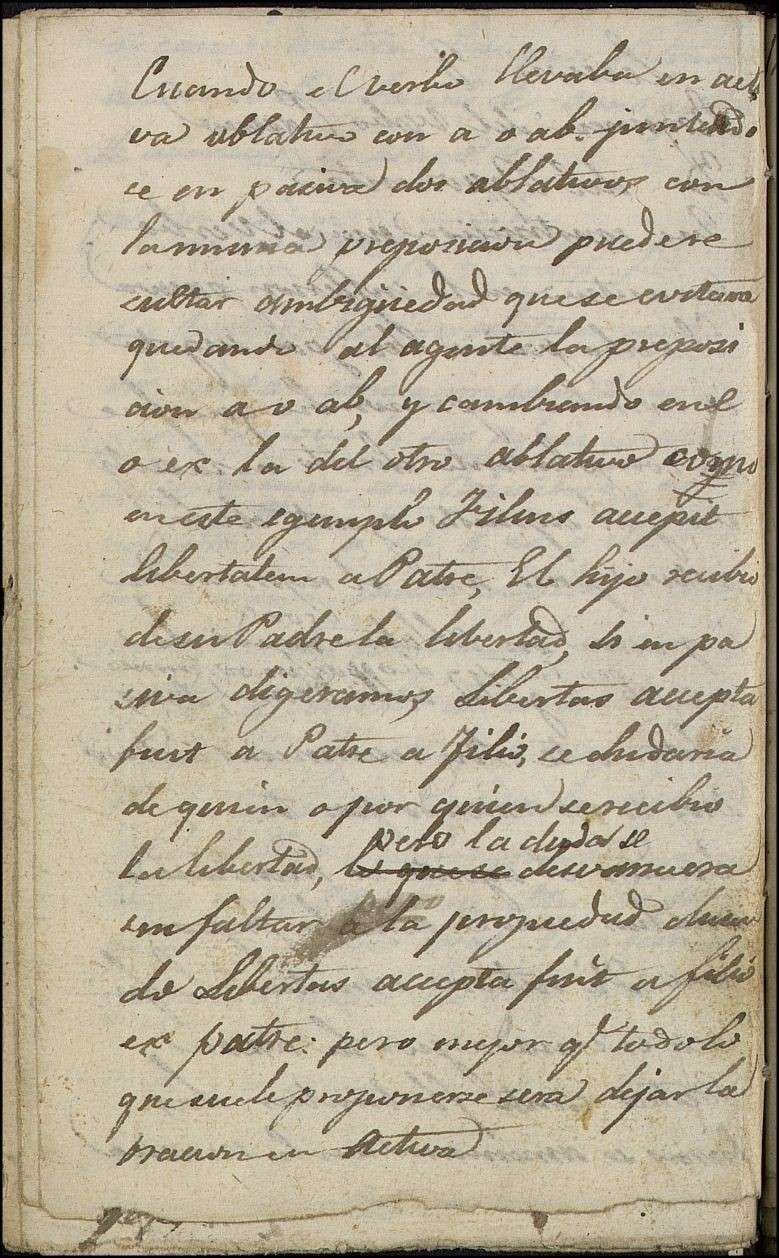 Cuando el verbo llevaba en acti
va ablativo con a o ab. juntando
se en pasiva dos ablativos con
la misma preposicion puede re
sultar ambiguedad que se evitara
quedando al agente la preposi
cion a o ab, y cambiando en e
o ex la del otro ablativo como
en este egemplo Filius accepit
libertatem a Patre, El hijo recibio
de su Padre la libertad, si en pa
siva digeramos, Libertas accepta
fuit a Patre a Filio, se dudaria
de quien o por quien se recibio
pero la duda se
la libertad, lo que se desvanecera
sin faltar a la propiedad dicien
do Libertas accepta fuit a filio
ex patre: pero mejor qe todo lo
que suele proponerse sera dejar la
oracion en Activa